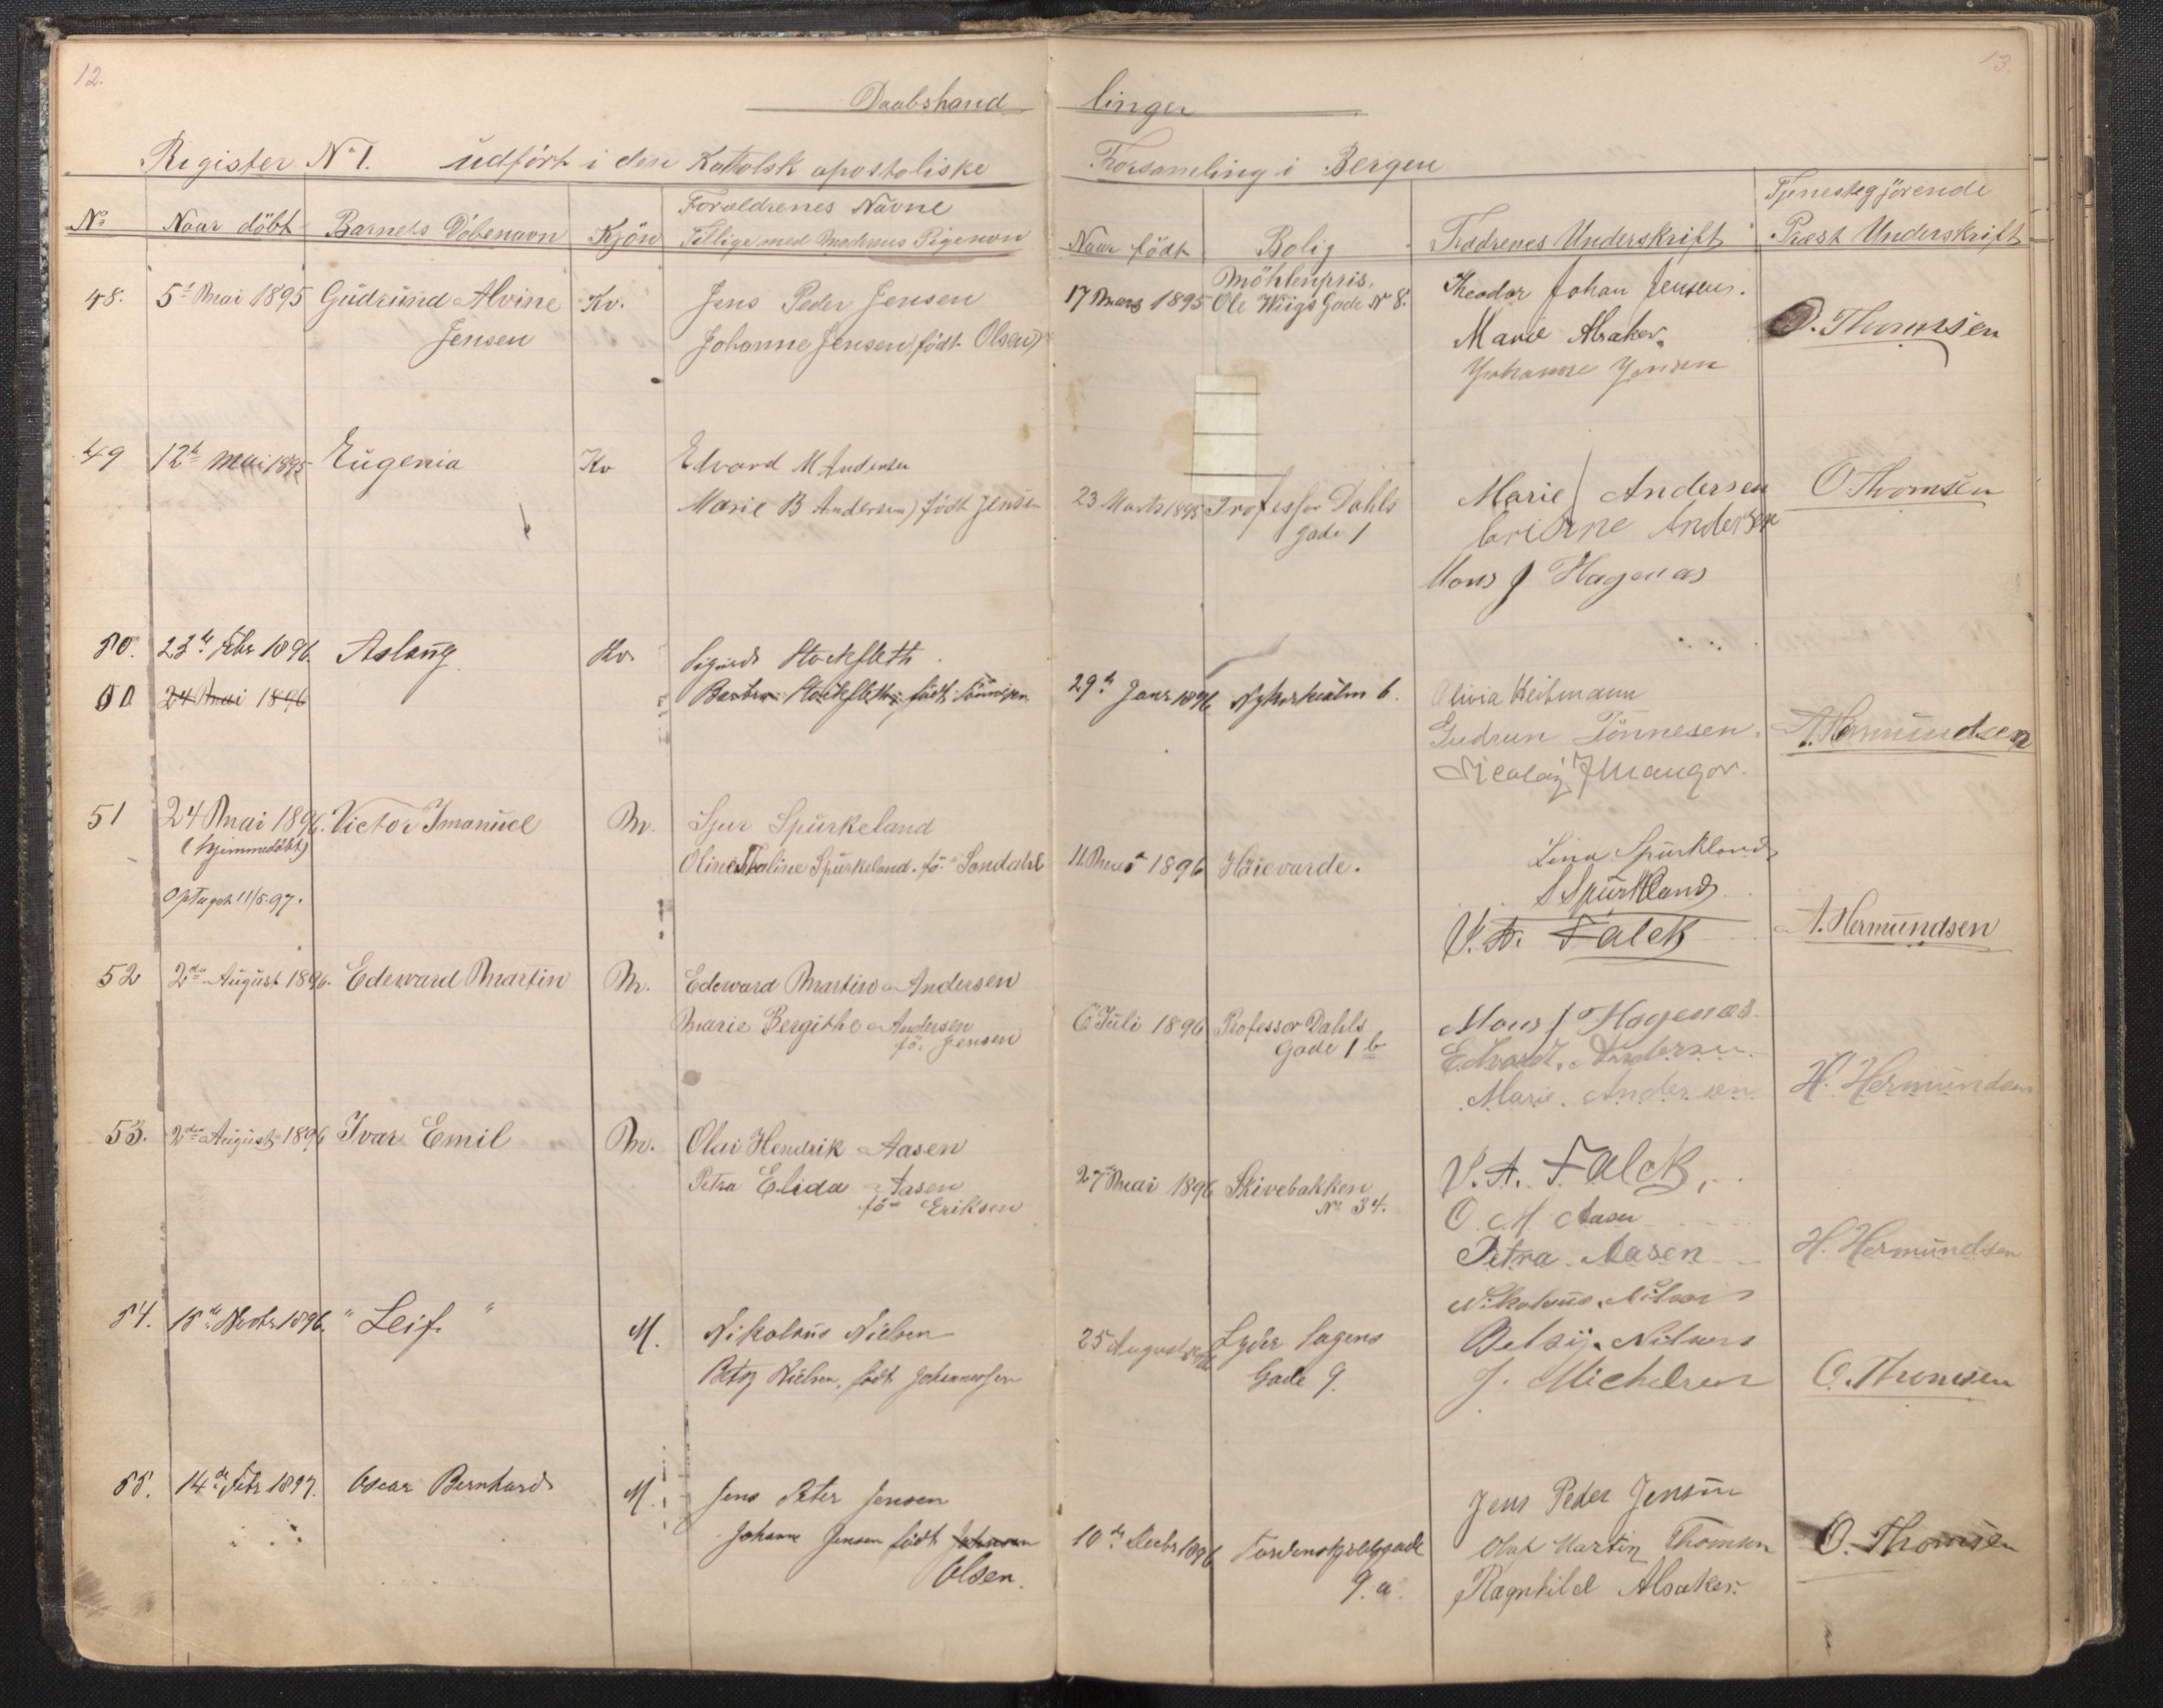 12.
13.
Daabshand linger
Register No 1. udført i den Katholsk apostoliske Forsamling i Bergen
No
Naar döbt
Barnets Döbenavn
Kjön
Forældrenes Navne
Tillige med Moderens Pigenavn
Naar född
Bolig
Faddrenes Underskrift
Tjenestegjörende
Præst Underskrift
48. 5t Mai 1895 Gudrund Alvine Kv. Jens Peder Jensen
Jensen Johanne Jensen (födt Olsen)
Möhlenpris,
17 Mars 1895 Ole Wiigs Gade No 8.
Theodor Johan Jensen.
Marie Alsaker.
Johanne Jensen
O. Thomsen
49 12te Mai 1895 Eugenia Kv Edvard M Andersen
Marie B Andersen) födt Jensen
23 Marts 1895 Professor Dahls
Gade 1
Marie Andersen
Andersen
Mons J Hagenas
O Thomsen
50. 23de Febr 1896. Aslaug Kv. Sigurd Stockfleth
50 24 Mai 1896 Stockfleth, födt
29de Janr 1896 6.
Olivia Heitmann
Gudrun Tönnesen.
Nicolay
A. Hermundsen
51 24 Mai 1896. Victor Imanuel M. Sjur Spurkeland
(hjemmedöbt) Spurkeland. fö. Sondahl
Optaget 11/5-97.
11 Mai 1896 Höievarde.
Lina Spurkland
S Spurkland
V. A. Falck
A. Hermundsen
52 2den August 1896. Edeward Martin M. Edeward Martin Andersen
Marie Bergithe Andersen
fö. Jensen
6 Juli 1896 Professor Dahls
Gade 1 b
Mons J Hagenas.
Edvard. Andersen.
Marie. Andersen
H. Hermundsen
53. 2den August 1896 Ivar Emil M. Olai Hendrik Aasen
Petra Elida Aasen
fö Eriksen
27de Mai 1896 Skivebakken
No 34.
V. A. Falck.
O. H Aasen
Petra Aasen
H. Hermundsen
54. 15de Novbr 1896. " Leif " M. Nikolaus Nielsen
Betzy Nielsen, födt Johannessen
25 August 1896 Lyder Sagens
Gade 9.
Nikolaus. Nilsen
Betsy. Nilsen
J. Michelsen
O. Thomsen
55. 14de Febr 1897. Oscar Bernhard M. Jens Peter Jensen
Johanne Jensen födt Johansen
Olsen.
10de Decbr 1896 Tordenskjoldsgade
9. a.
Jens Peder Jensen
Olaf Martin Thomsen
Ragnhild Alsaker.
O. Thomsen